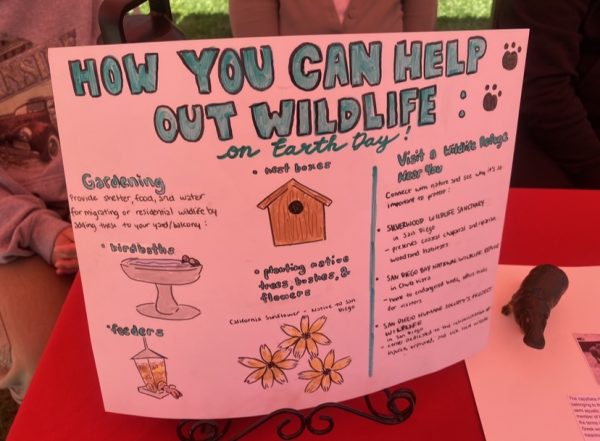 HOW YOU CAN HELP
OUT WILDLIFE :
on Earth Day!
Gardening
Provide shelter, food, and water
for migrating or residential wildlife by
adding these to your yard/balcony:
• birdbaths
• feeders
• nest boxes
• planting native
trees, bushes, &
flowers
California Sunflower - Native to San
Diego
Visit a Wildlife Refuge
Near You
Connect with nature and see why it's so
important to protect:
• SILVERWOOD WILDLIFE SANCTUARY
in San Diego
- preserves coastal chaparral and riparian
woodland habitats
• SAN DIEGO BAY NATIONAL WILDLIFE REFUGE
in Chula Vista
- home to endangered birds, offers trails
for visitors
• SAN DIEGO HUMANE SOCIETY'S PROJECT
WILDLIFE
in San Diego
- center dedicated to the rehabilitation of
injured, orphaned, and sick local wildlife
The capybara
belonging to